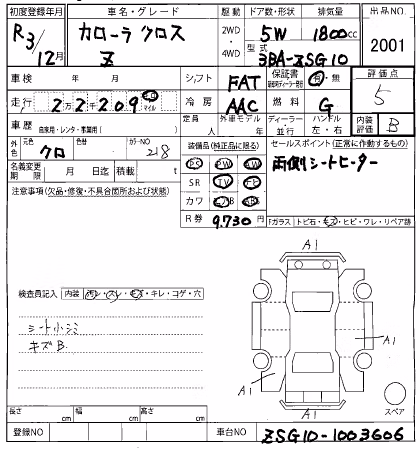 初度登録年月 車名・グレード 駆動 ドア数・形状 排気量 出品NO
R3/12月 カローラ クロス Z 2WD・4WD 5W 1800cc 2001
型式 3BA-ZSG10
車検 年 月 シフト FAT 保証書 有・無 評価点 5
走行 22209 キロ マイル 冷房 AAC 燃料 G
車歴 自家用・レンタ・事業用( ) 定員 人 外車モデル 年 ディーラー・並行 ハンドル 左・右 内装評価 B
外色 元色 クロ 色替 カラーNO 218 装備品(純正品に限る) セールスポイント(正常に作動するもの)
名義変更期限 月 日迄 積載 t PS PW AW 両側シートヒーター
注意事項(欠品・修復・不具合箇所および状態) SR TV ナビ
カワ エアB ABS
R券 9,730円 Fガラス トビ石・キズ・ヒビ・ワレ・リペア跡
A1
検査員記入 内装 汚レ・スレ・キズ・キレ・コゲ・穴
シート小シミ
キズB
A1
A1
スペア
A1
長さ cm 幅 cm 高さ cm
登録NO 車台NO ZSG10-1003606